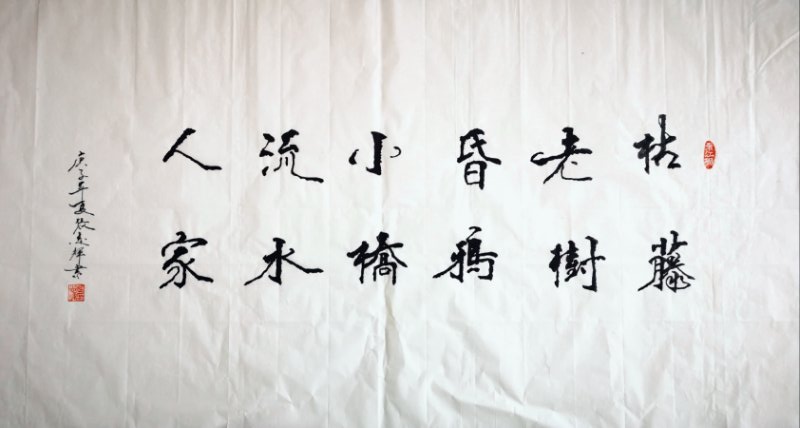 枯藤
老樹
昏鴉
小橋
流水
人家
庚子年夏張志輝書